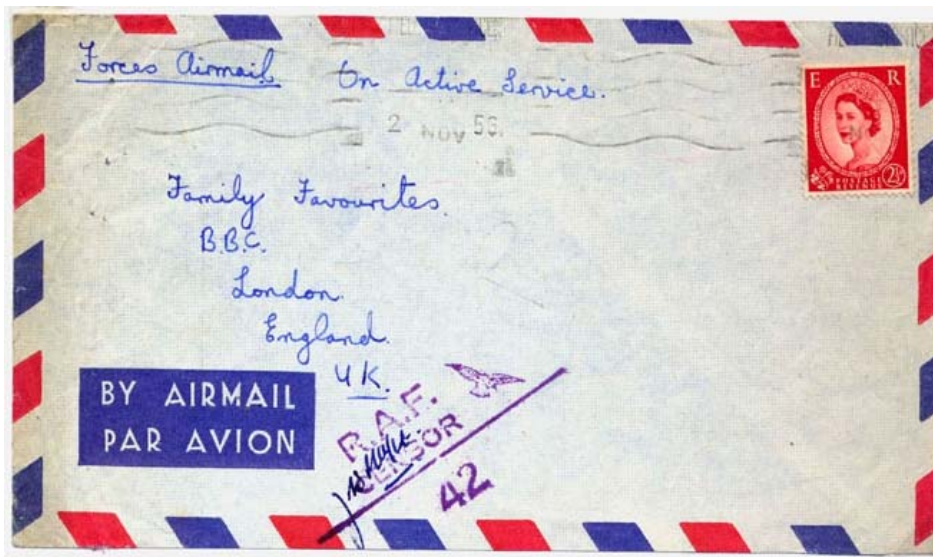 Forces Airmail On Active Service.
E R
2 NOV 56.
POSTAGE
REVENUE 2½D
Family Favourites.
B.B.C.
London.
England.
U.K.
BY AIRMAIL
PAR AVION
R.A.F.
CENSOR
42